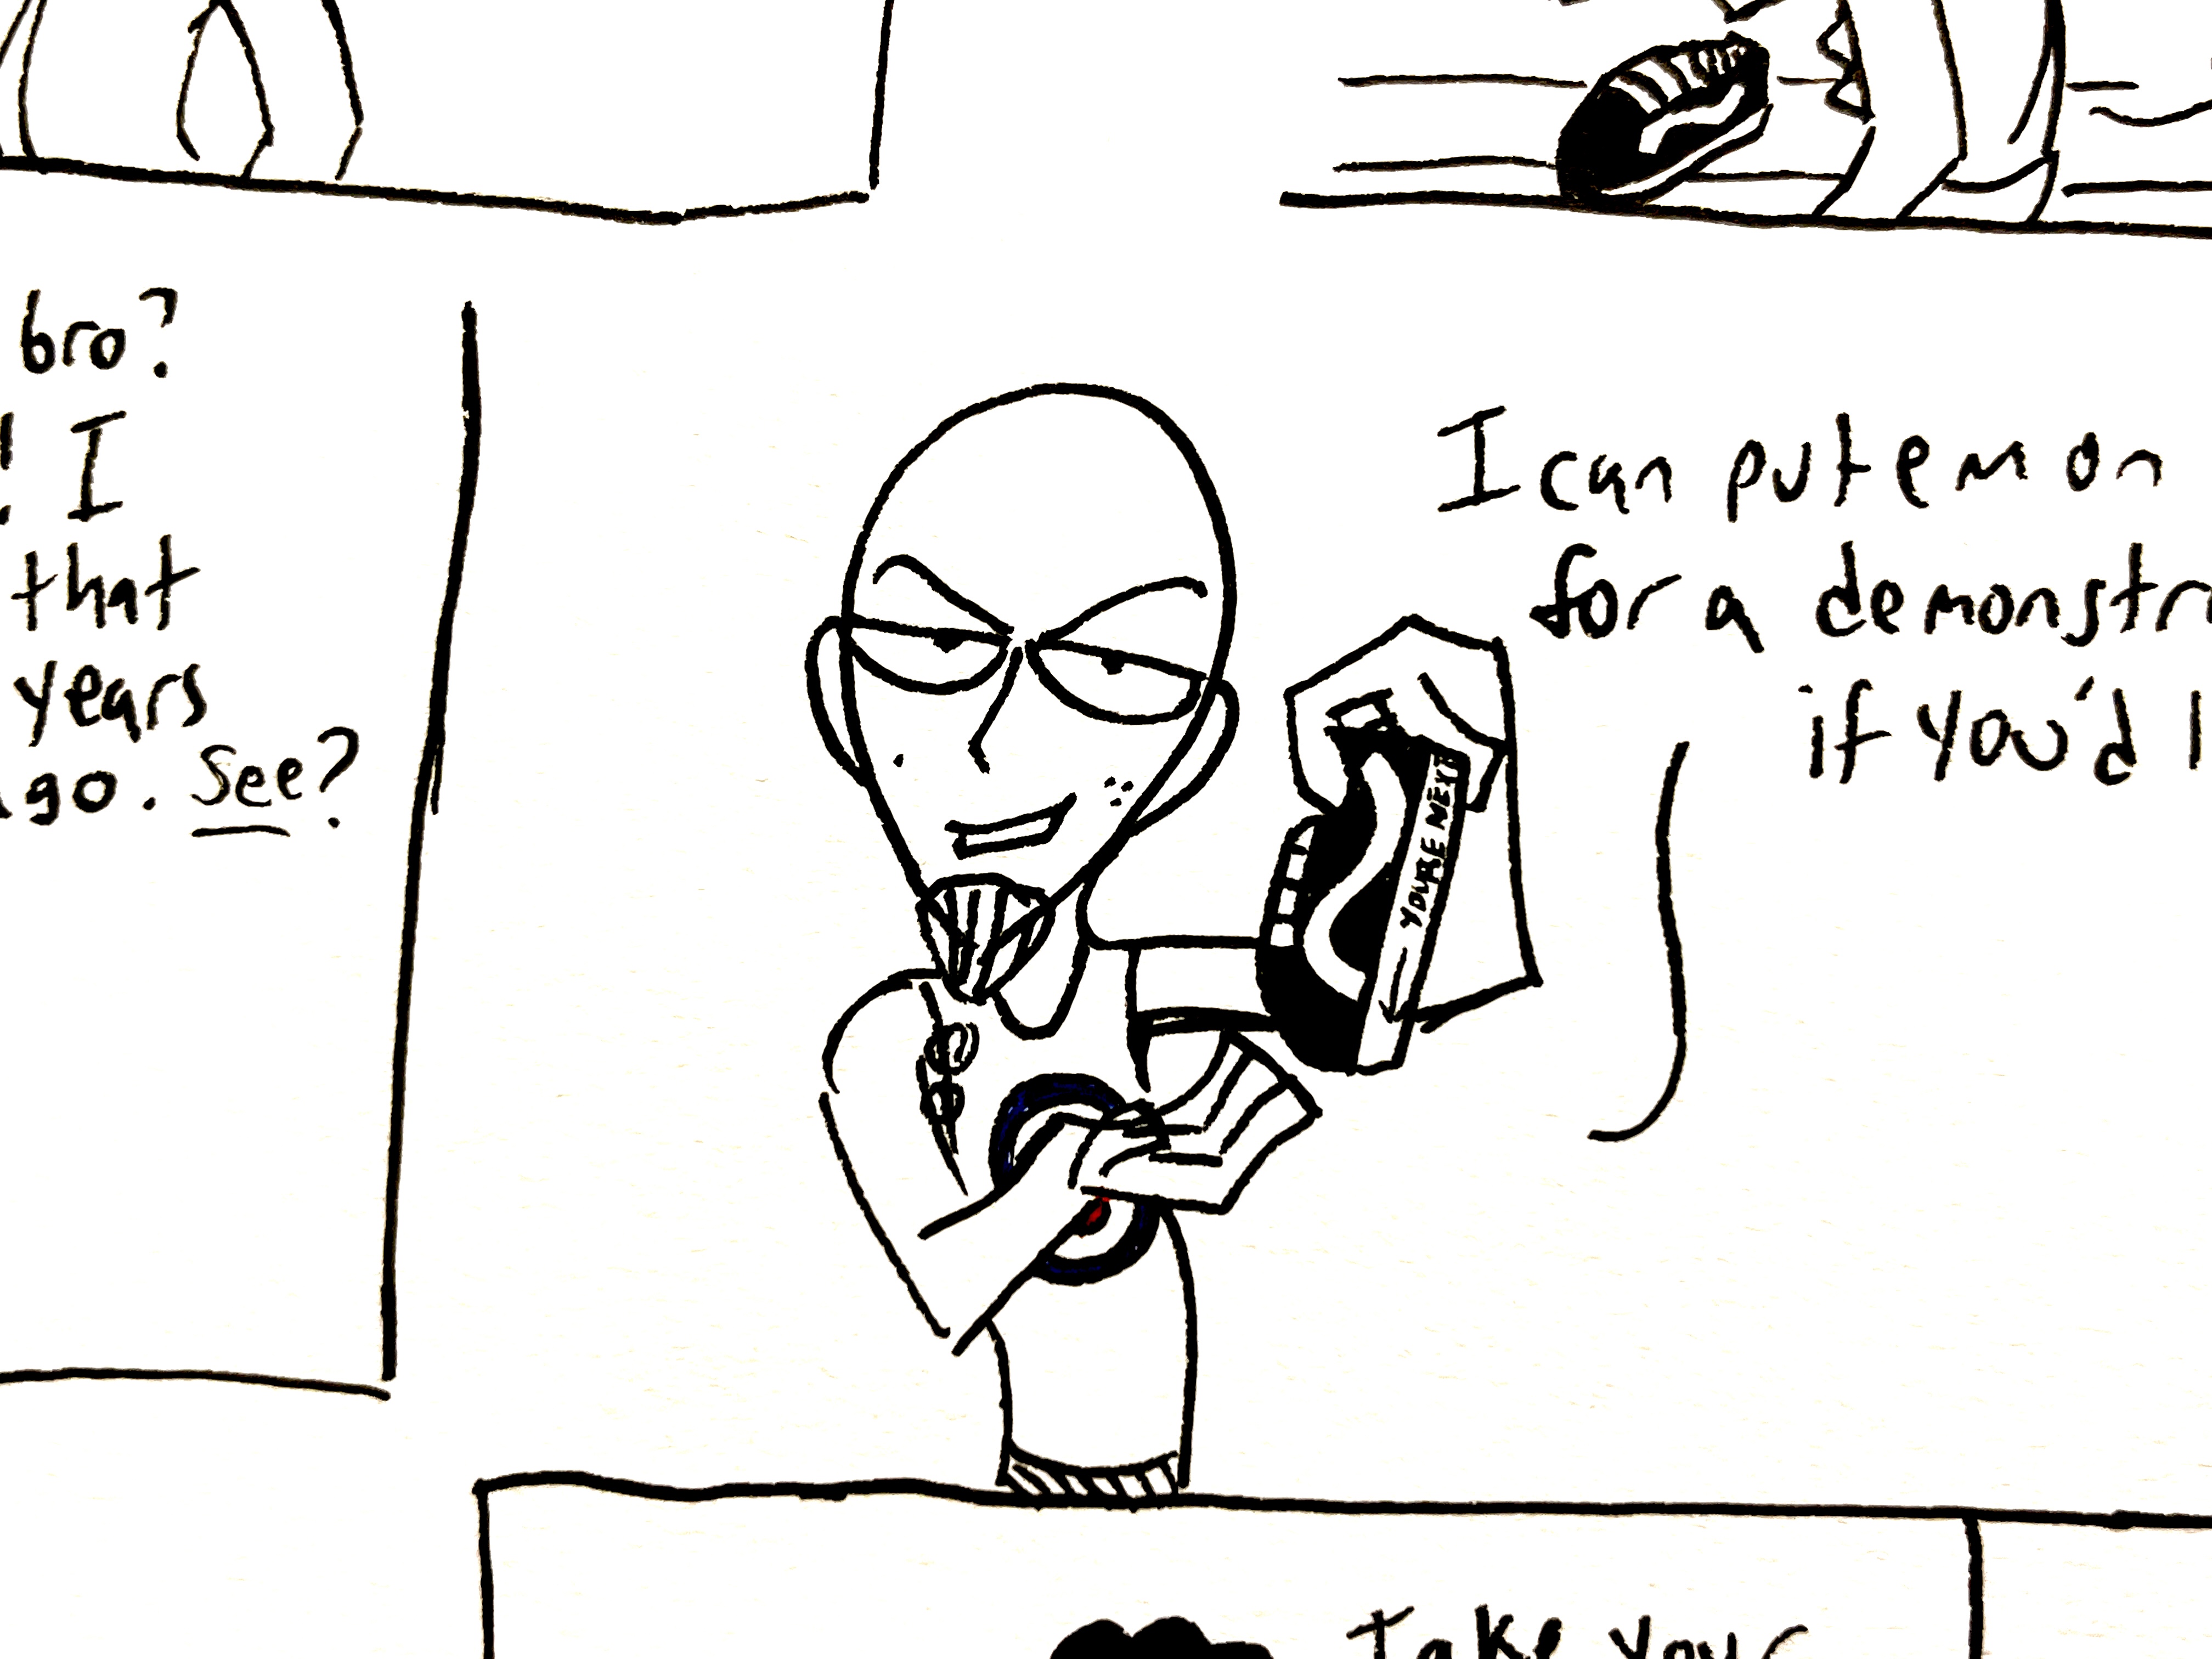 bro?
I
that
years
go. See?
I can put em on
for a demonstr
if you'd l
YOU'RE NEXT
Take your